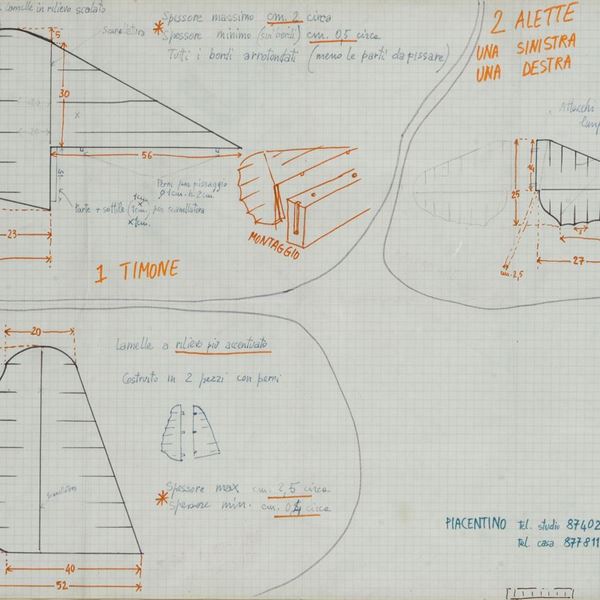 lamelle in rilievo scalato
Scanalatura
* Spessore massimo cm. 2 circa
Spessore minimo (sui bordi) cm. 0,5 circa
Tutti i bordi arrotondati (meno le parti da pissare)
2 ALETTE
UNA SINISTRA
UNA DESTRA
Attacchi
5
30
56
Perni per pissaggio
ø 1cm. h. 2cm.
parte + sottile (1cm. per scanalatura
1cm.
x 1cm.
23
MONTAGGIO
1 TIMONE
25
cm. 2,5
27
20
Lamelle a rilievo più accentuato
Costruito in 2 pezzi con perni
scanalatura
* Spessore max cm. 2,5 circa
Spessore min. cm. 0,4 circa
40
52
PIACENTINO tel. studio 87402
tel. casa 877811